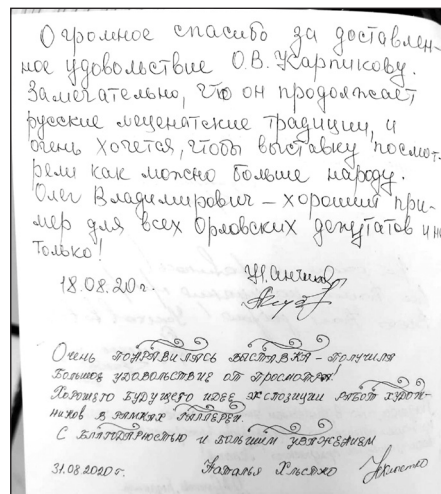 Огромное спасибо за доставлен-
ное удовольствие О.В. Карпикову.
Замечательно, что он продолжает
русские меценатские традиции, и
очень хочется, чтобы выставку посмот-
рели как можно больше народу.
Олег Владимирович – хороший при-
мер для всех Орловских депутатов и не
только!
18.08.20 г.
Очень понравилась выставка – получила
большое удовольствие от просмотра!
Хорошего будущего идее экспозиции работ худож-
ников в рамках галлереи.
С благодарностью и большим уважением
31.08.2020 г. Наталья